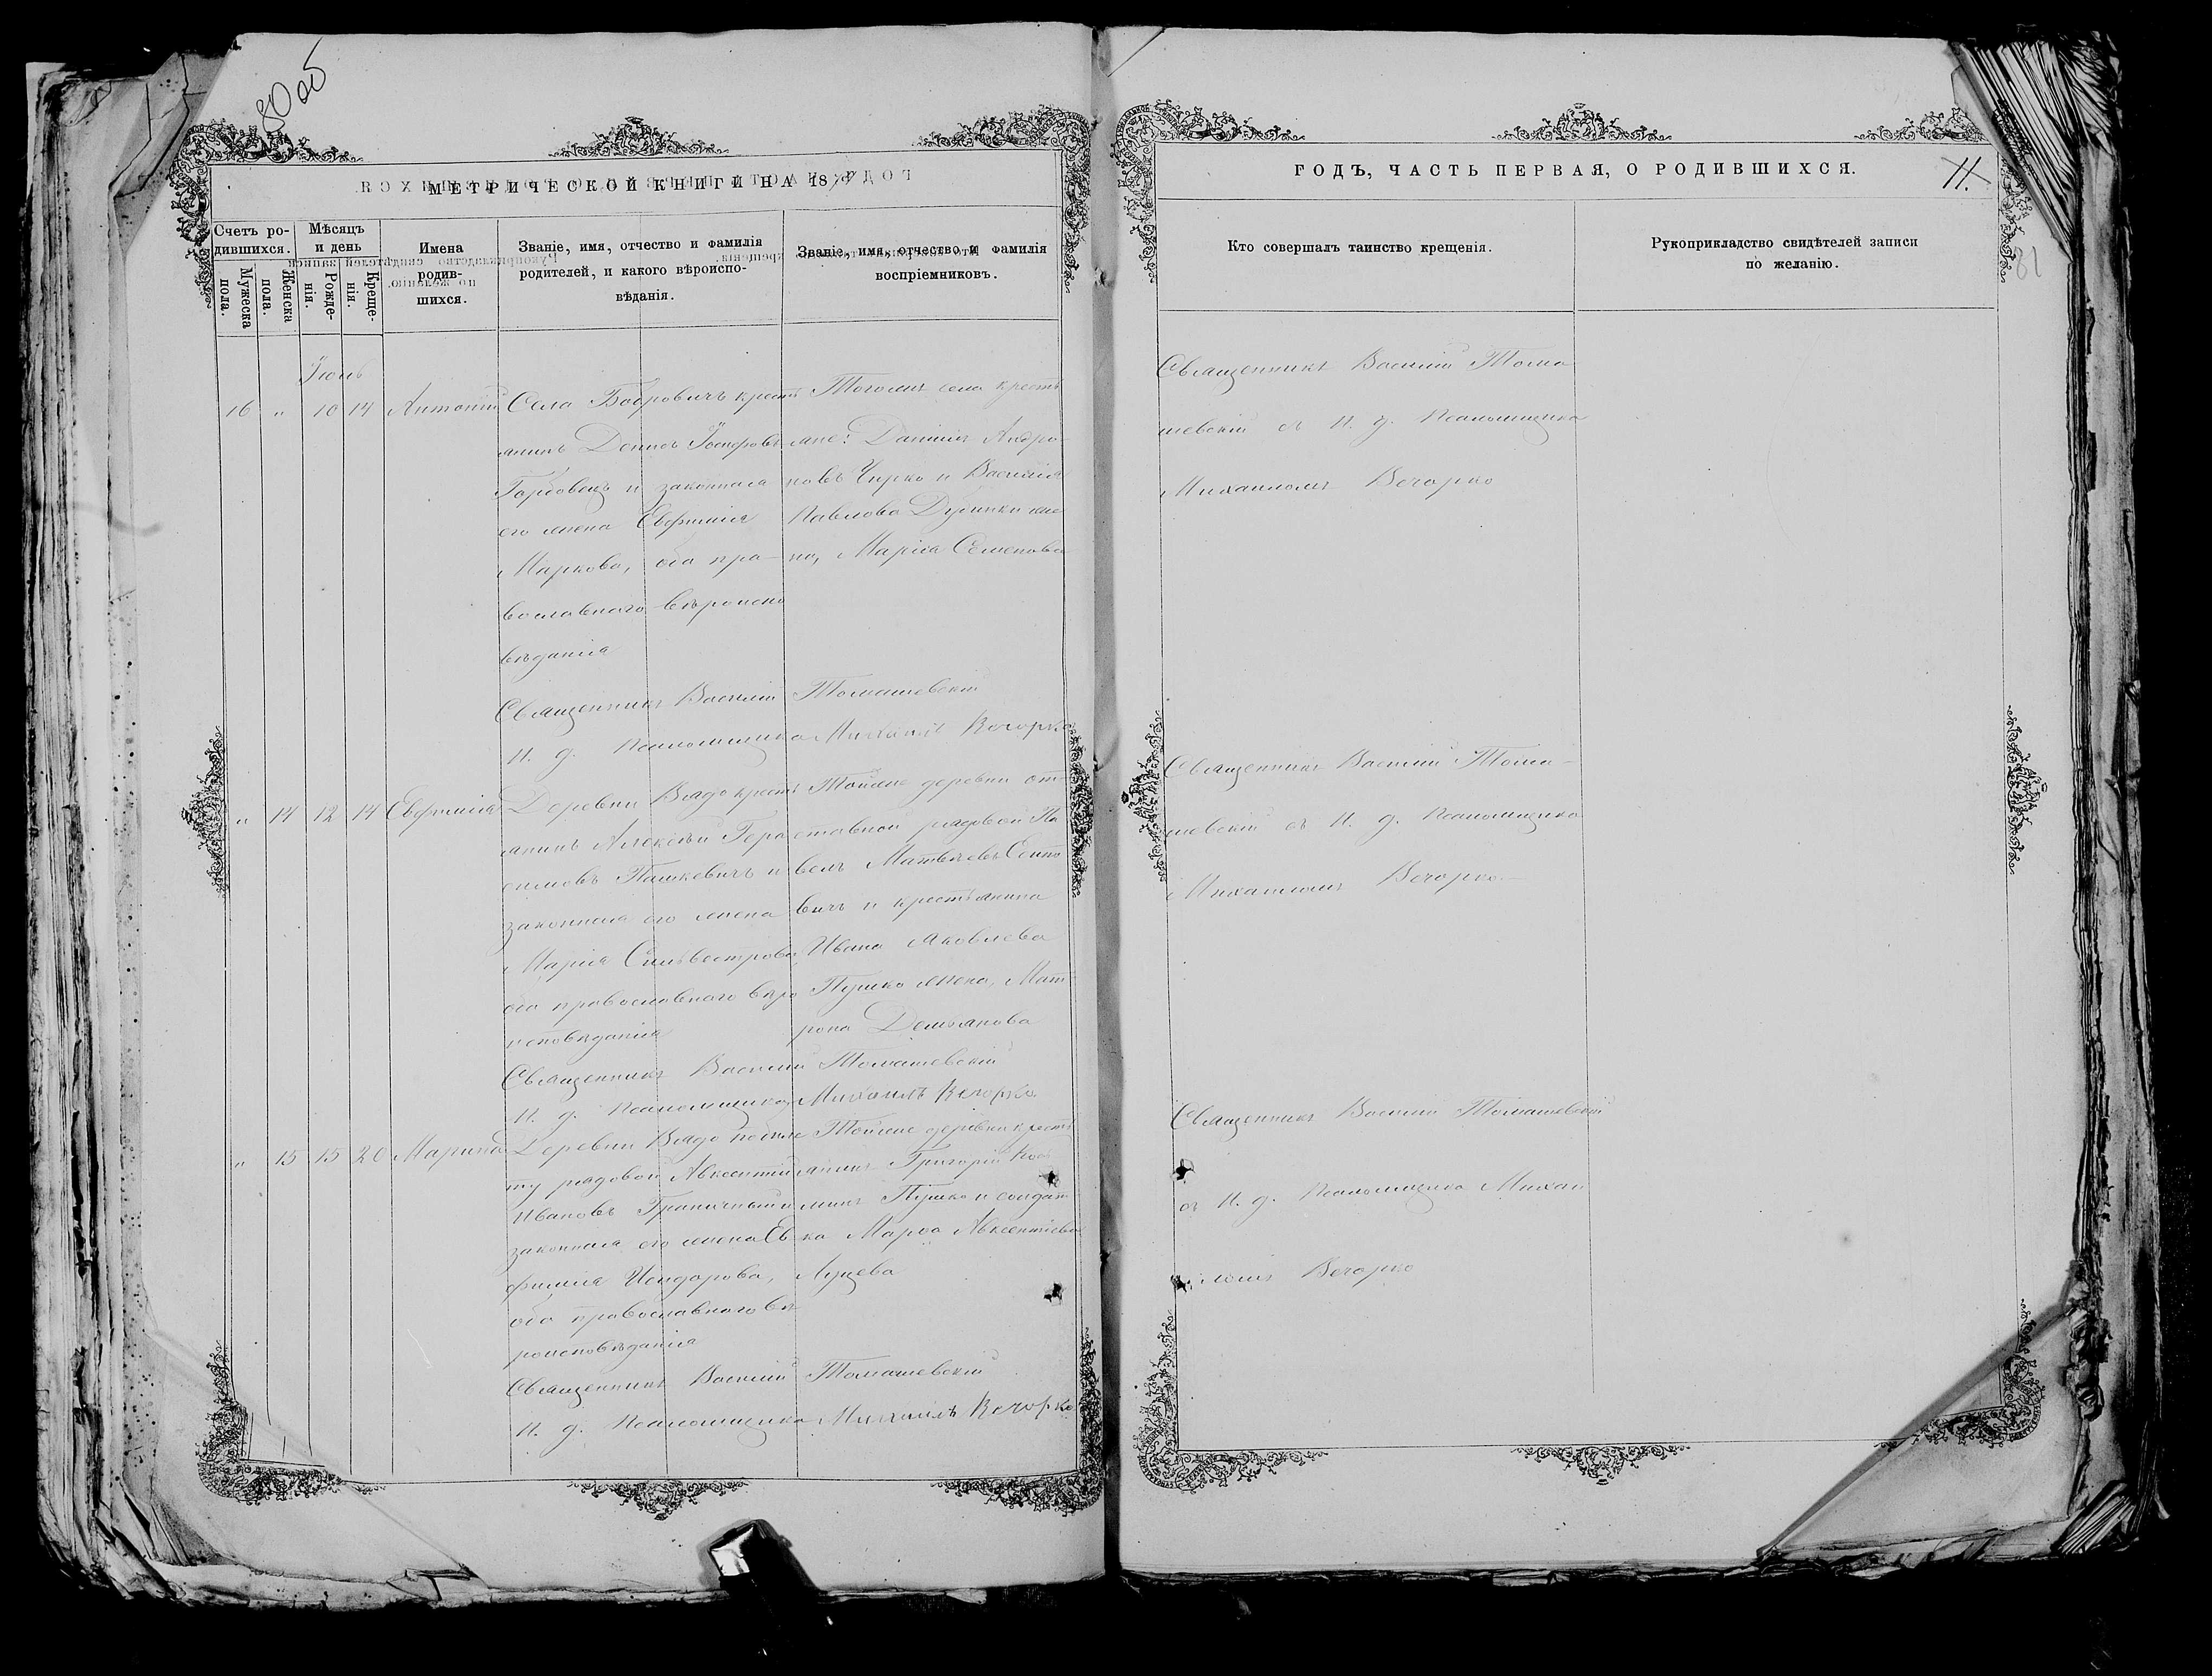 80 об
МЕТРИЧЕСКОЙ КНИГИ НА 18
Счетъ ро-
дившихся.
Мужеска
пола.
Женска
пола.
Мѣсяцъ
и день
Рожде-
нія.
Креще-
нія.
Имена
родив-
шихся.
Званіе, имя, отчество и фамилія
родителей, и какого вѣроиспо-
вѣданія.
Званіе, имя, отчество и фамилія
воспріемниковъ.
Іюнь
16 " 10 14 Антоній
Села Бобровичъ кресть
янинъ Денисъ
и законная
его жена Евфимія
Маркова, оба пра-
вославнаго вѣроиспо
вѣданія
Тогожъ села кресть
яне: Даніилъ Андро-
новъ Чирко и Василія
Павлова жe
на, Марія Семенова
Священникъ Василій Томашевскій
И. д. Псаломщика Михаилъ Вечорко
" 14 12 14 Евфимія
Деревни Вядо кресть
янинъ Алексѣй Гера
симовъ Пашкевичъ и
законная его жена
Марія Сильвестрова,
оба православнаго вѣро
исповѣданія
Тойже деревни от-
ставной рядовой Па
велъ Матвѣевъ
вичъ и крестьянина
Ивана Яковлева
Пушко жена, Мат
рона Демьянова
Священникъ Василій Томашевскій
И. д. Псаломщика Михаилъ Вечорко
" 15 15 20 Марина
Деревни Вядо
ту рядовой Авксентій
Ивановъ
законная его жена Ев
фимія Исидорова,
оба православнаго вѣ
роисповѣданія
Тойже деревни кресть
янинъ Григорій
минъ Пушко и солдат
ка Марѳа Авксентіева
Луцева
Священникъ Василій Томашевскій
И. д. Псаломщика Михаилъ Вечорко
ГОДЪ, ЧАСТЬ ПЕРВАЯ, О РОДИВШИХСЯ.
11.
81
Кто совершалъ таинство крещенія.
Рукоприкладство свидѣтелей записи
по желанію.
Священникъ Василій Тома
шевскій съ И. д. Псаломщика
Михаиломъ Вечорко
Священникъ Василій Тома-
шевскій съ И. д. Псаломщика
Михаиломъ Вечорко
Священникъ Василій Томашевскій
съ И. д. Псаломщика Михаи
ломъ Вечорко